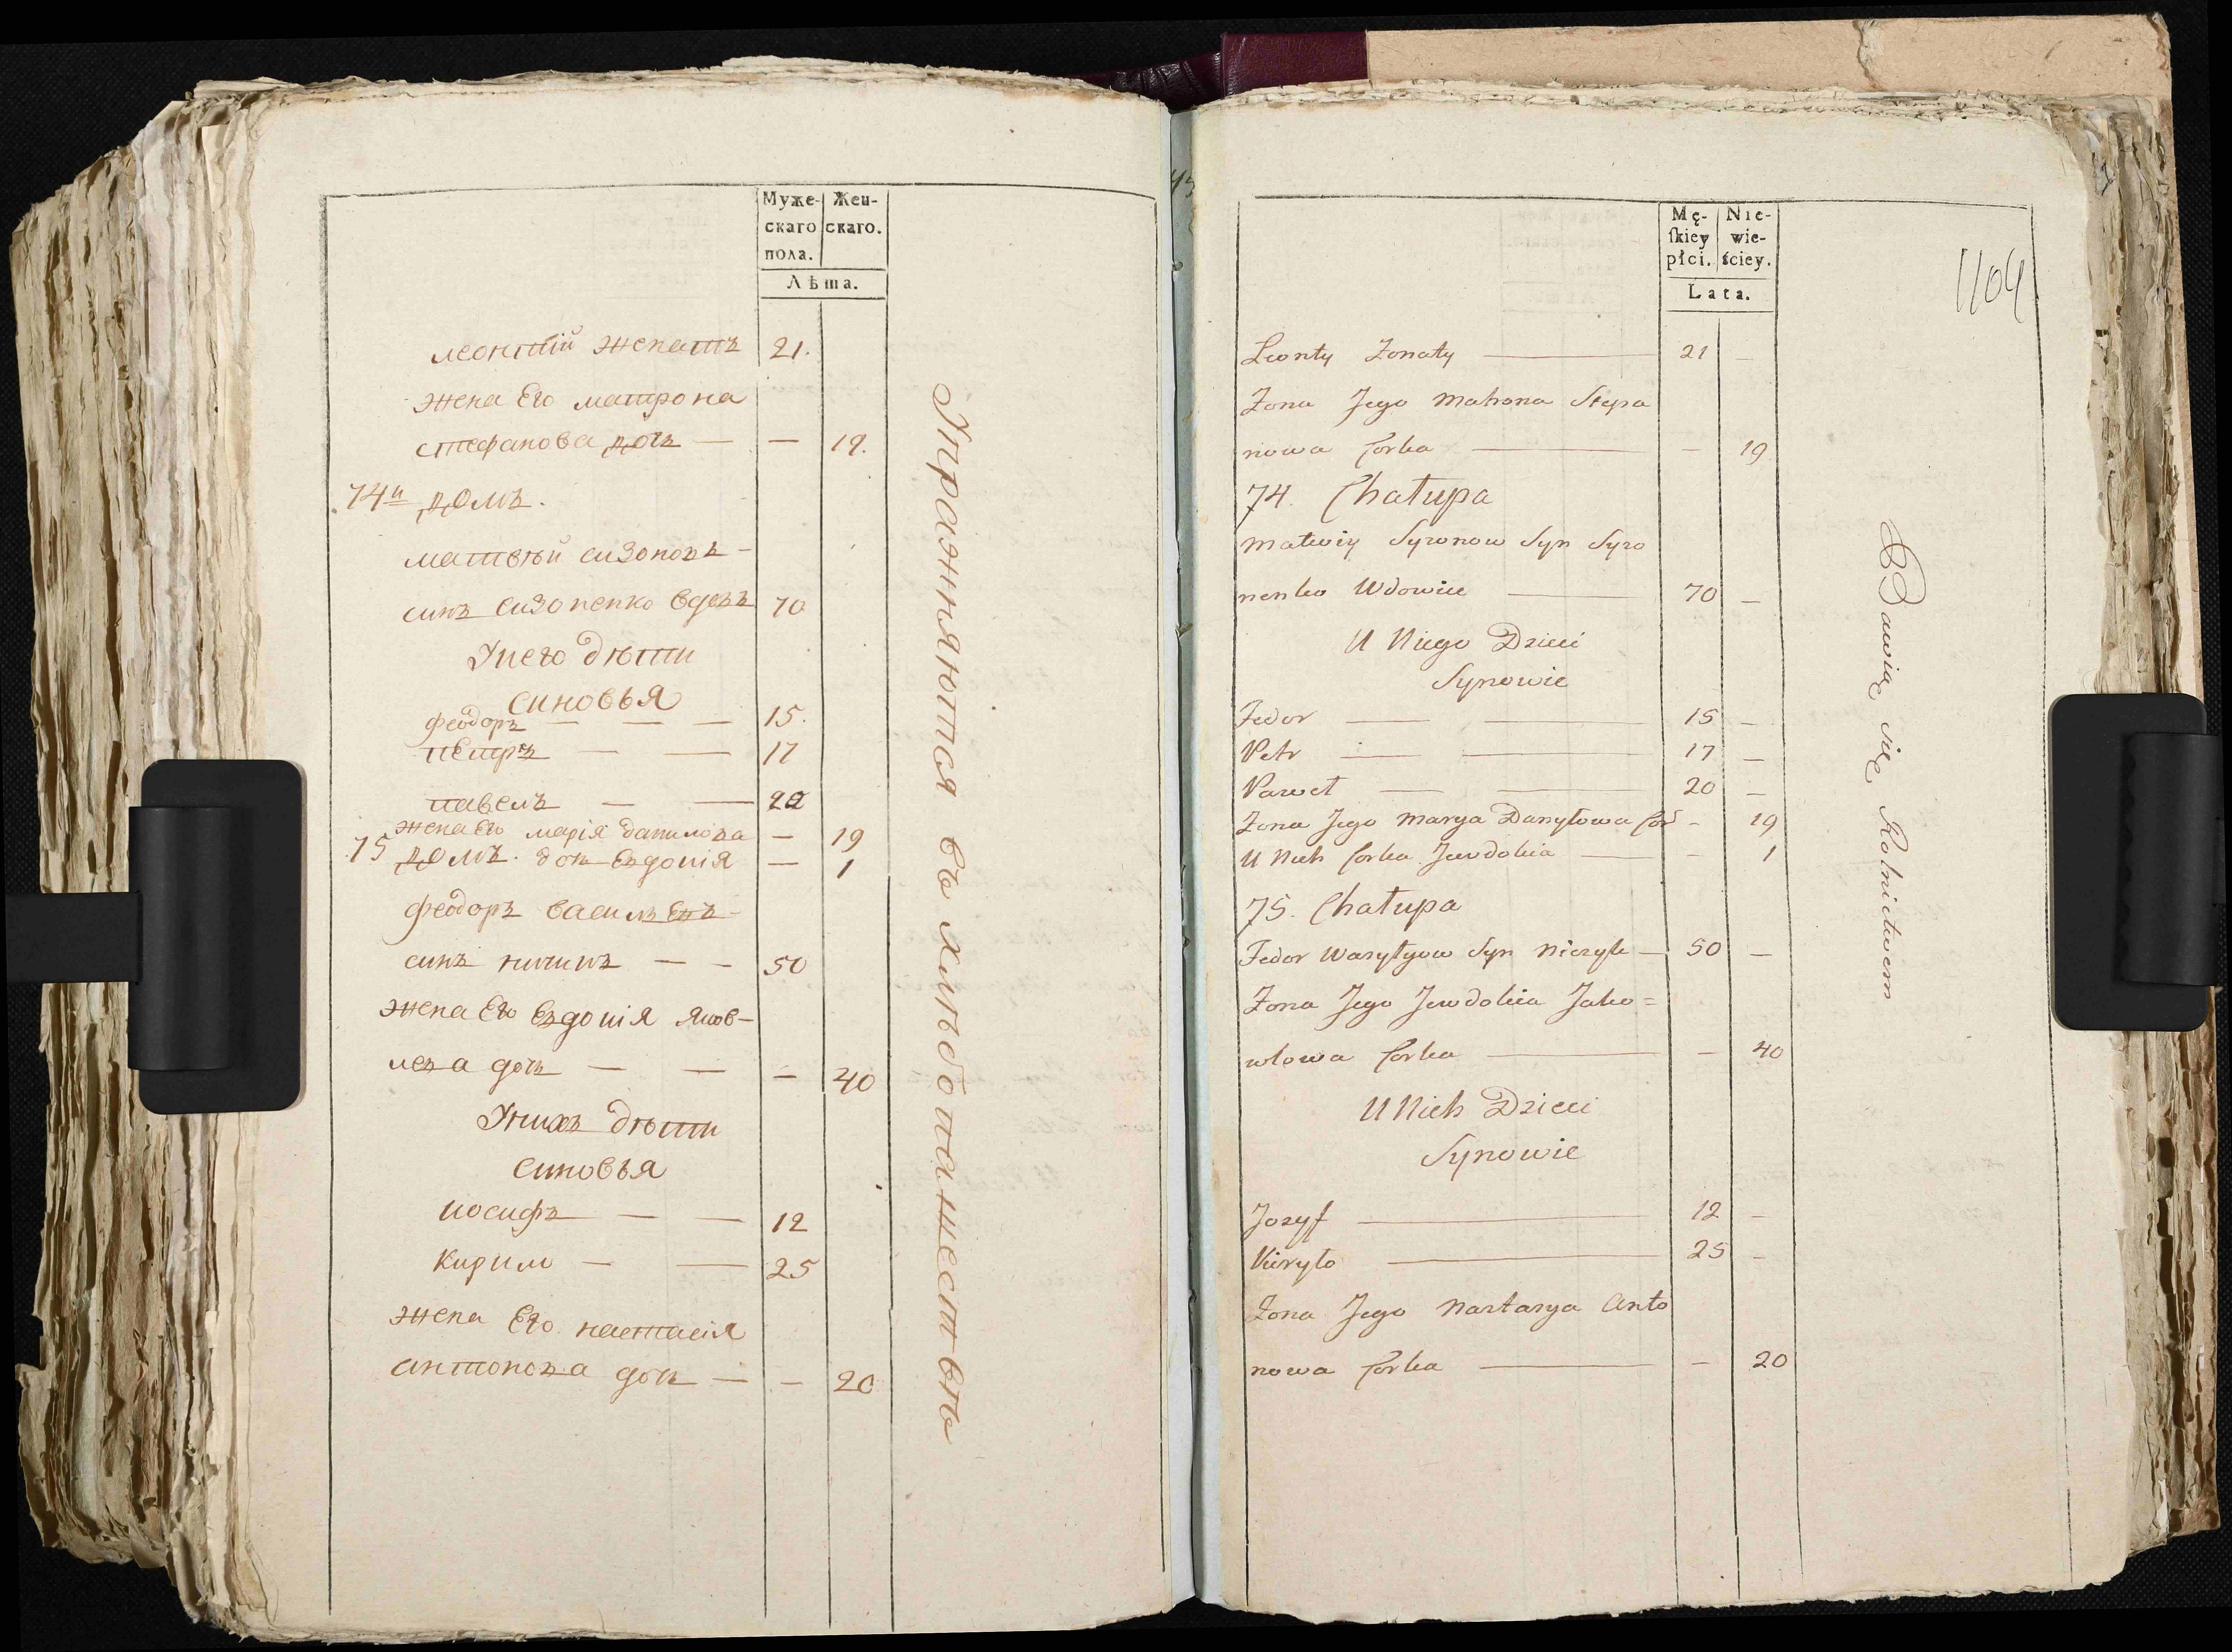 Муже- Жен-
скаго скаго.
пола.
Лѣта.
леонтій женатъ 21.
жена Его матрона
стефанова дочь — — 19.
74й домъ.
матвѣй сизоновъ
синъ сизоненко вдовъ 70
Унего дѣти
синовья
феодоръ — — — 15.
пЕтръ — — 17
павелъ — — 20
жена Его марія данилова — 19
75 домъ. дочь Евдокія — 1
феодоръ василЕвъ
синъ ничикъ — — 50
жена Его Евдокія яков-
лева дочь — — — 40
Унихъ дѣти
синовья
иосифъ — — 12
кирило — — 25
жена Его настасія
антонова дочь — — 20
Упражняются въ хлѣбопашествѣ
Mę- Nie-
ſkiey wie-
płci. ściey.
Lata.
1104
Leonty Zonaty — 21 —
Zona Jego Matrona Stepa
nowa Corka — — 19
74. Chałupa
Matwiy Syzonow Syn Syzo
nenko Wdowiec — 70 —
U Niego Dzieci
Synowie
Fedor — — 15 —
Petr — — 17 —
Paweł — — 20 —
Zona Jego Marya Danyłowa Cor — 19
U Nich Corka Jewdokia — — 1
75. Chałupa
Fedor Wasyłyow Syn Niczyk — 50 —
Zona Jego Jewdokia Jako=
wlowa Corka — — 40
U Nich Dzieci
Synowie
Jozyf — 12 —
Kiryło — 25 —
Zona Jego Nastasya Anto
nowa Corka — — 20
Bawią się Rolnictwem